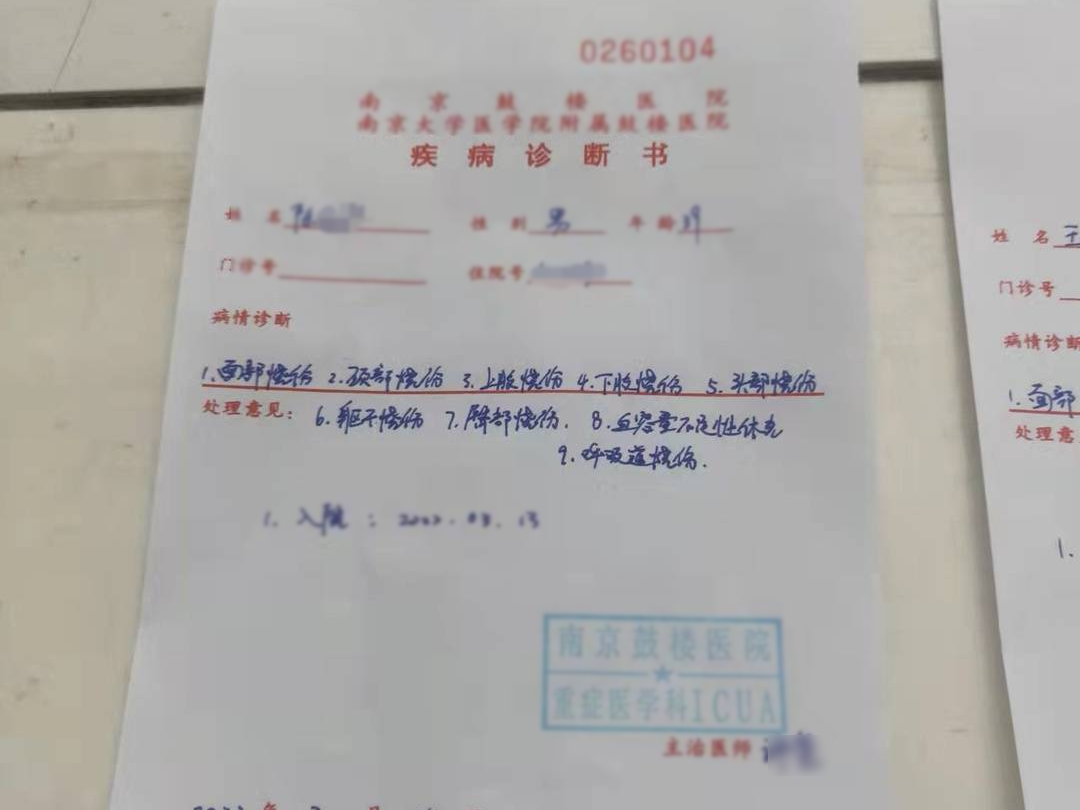 0260104
南京鼓楼医院
南京大学医学院附属鼓楼医院
疾病诊断书
姓名 性别 男 年龄
门诊号 住院号
病情诊断
1.面部烧伤 2.颈部烧伤 3.上肢烧伤 4.下肢烧伤 5.头部烧伤
处理意见: 6.躯干烧伤 7.臀部烧伤. 8.血容量不足性休克
9.呼吸道烧伤.
1. 入院:
南京鼓楼医院
重症医学科ICUA
主治医师
姓名 王
门诊号
病情诊断
1.面部
处理意
1.